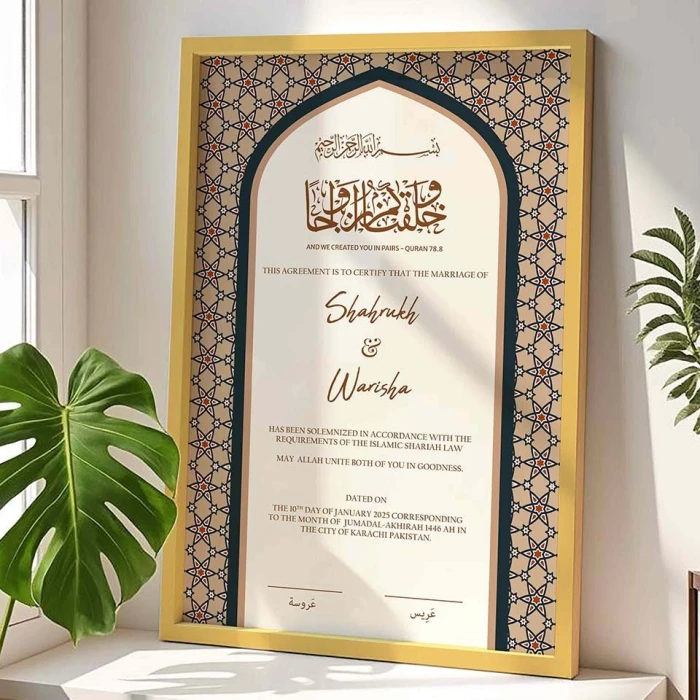 بسم الله الرحمن الرحيم
وخلقناكم أزواجا
AND WE CREATED YOU IN PAIRS – QURAN 78.8
THIS AGREEMENT IS TO CERTIFY THAT THE MARRIAGE OF
Shahrukh
&
Warisha
HAS BEEN SOLEMNIZED IN ACCORDANCE WITH THE
REQUIREMENTS OF THE ISLAMIC SHARIAH LAW
MAY ALLAH UNITE BOTH OF YOU IN GOODNESS.
DATED ON
THE 10TH DAY OF JANUARY 2025 CORRESPONDING
TO THE MONTH OF JUMADAL-AKHIRAH 1446 AH IN
THE CITY OF KARACHI PAKISTAN.
عَروسة
عَريس